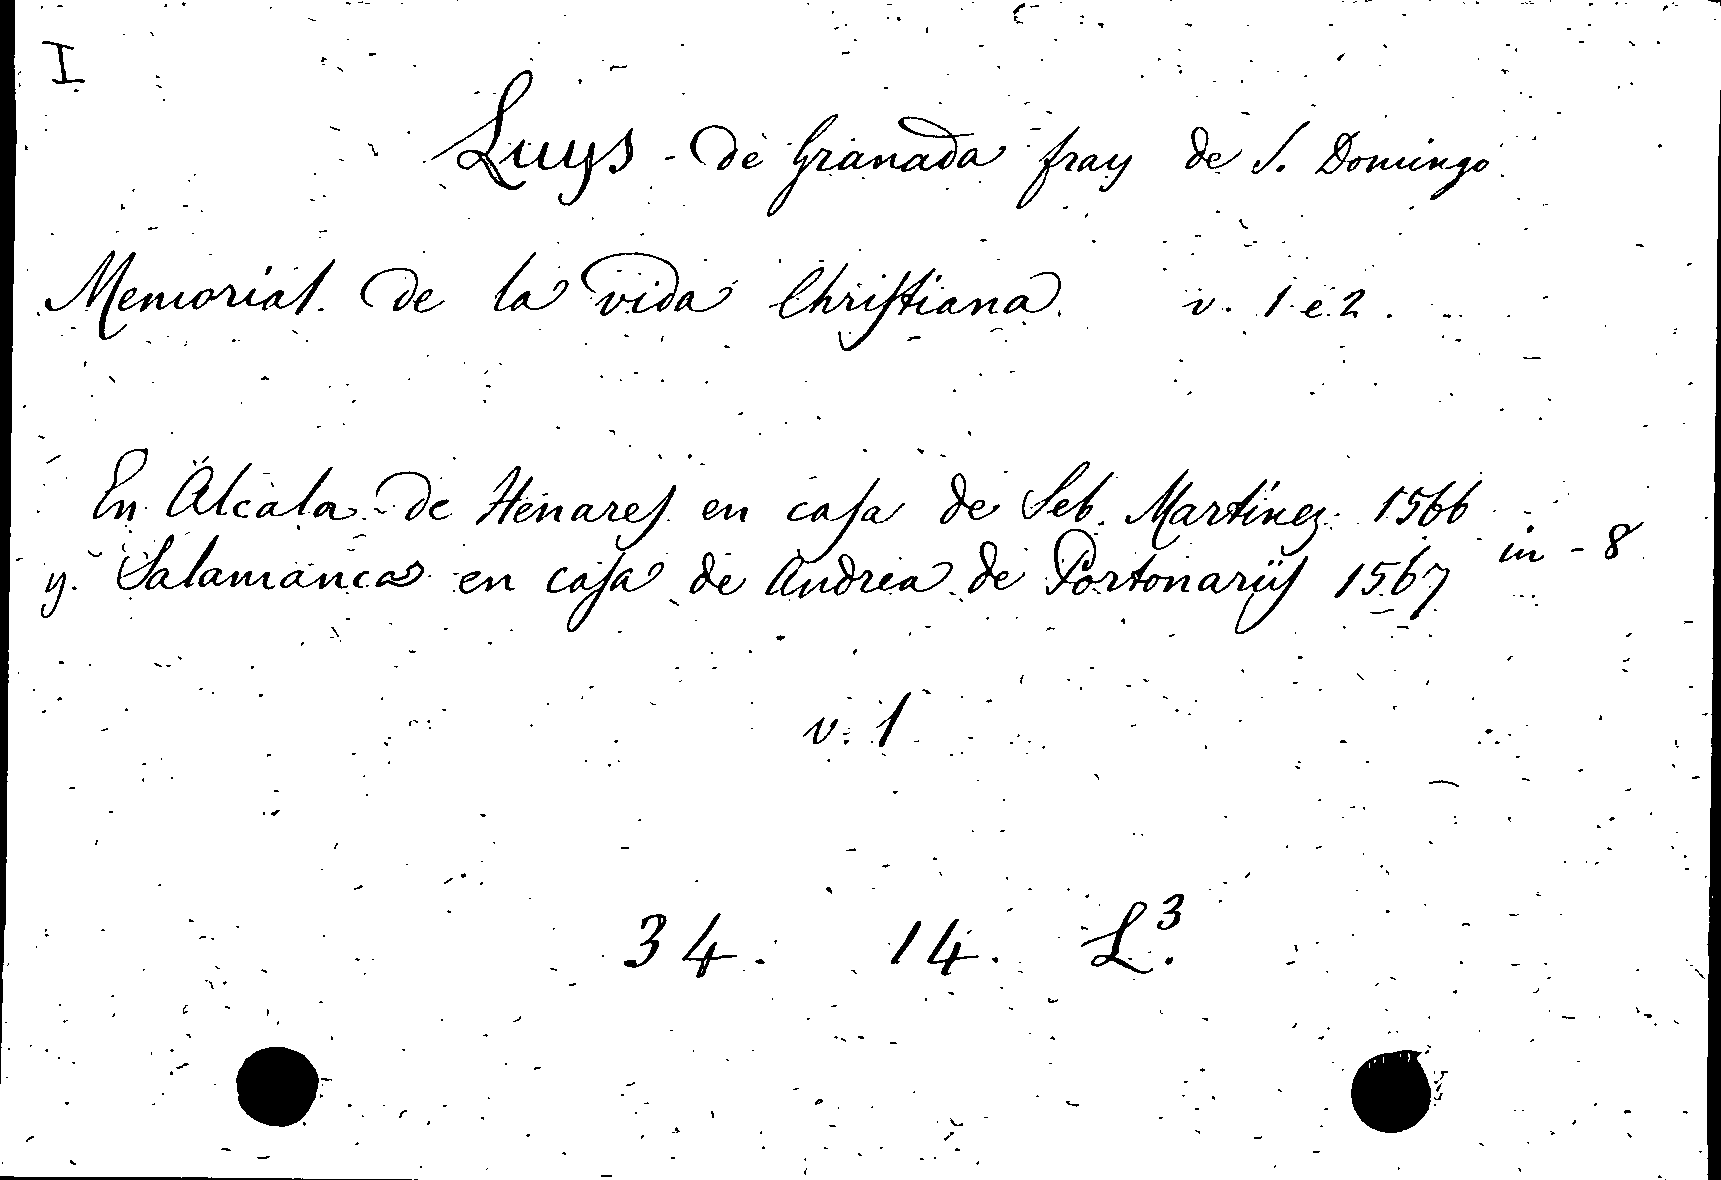 I
Luys - de Granada fray de S. Domingo
Memorial de la vida Chriſtiana v. 1 e 2.
En Alcala de Henareſ en caſa de Seb. Martinez 1566
y Salamanca en caſa de Andrea de Portonariiſ 1567
in - 8
v. 1
34. 14. L.³